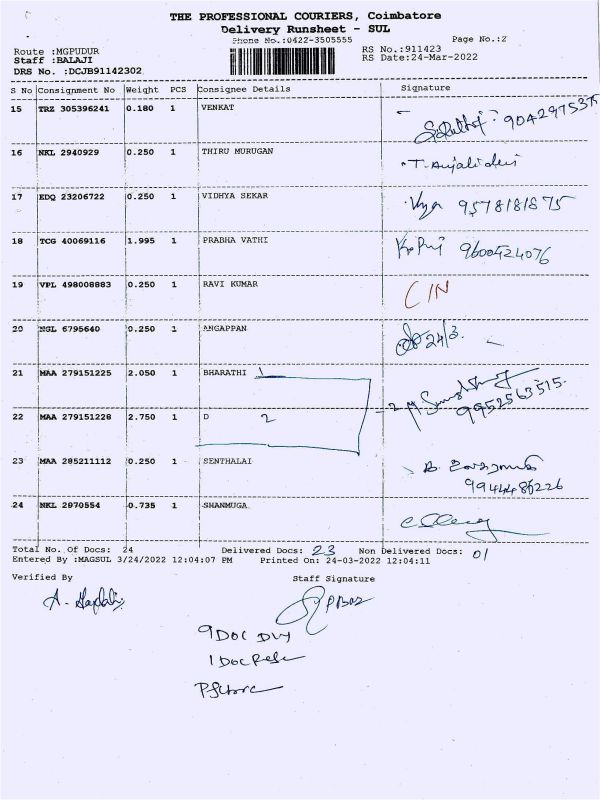 THE PROFESSIONAL COURIERS, Coimbatore
Delivery Runsheet - SUL
Phone No.:0422-3505555
Page No.:2
Route :MGPUDUR
RS No.:911423
Staff :BALAJI
RS Date:24-Mar-2022
DRS No. :DCJB91142302
S No Consignment No Weight PCS Consignee Details Signature
15 TRZ 305396241 0.180 1 VENKAT
16 NKL 2940929 0.250 1 THIRU MURUGAN T. Anjali devi
17 EDQ 23206722 0.250 1 VIDHYA SEKAR 9578181875
18 TCG 40069116 1.995 1 PRABHA VATHI 9600524076
19 VPL 498008883 0.250 1 RAVI KUMAR C/N
20 NGL 6795640 0.250 1 ANGAPPAN 24/3.
21 MAA 279151225 2.050 1 BHARATHI 1
9952563515.
22 MAA 279151228 2.750 1 D 2
23 MAA 285211112 0.250 1 SENTHALAI
9944486226
24 NKL 2970554 0.735 1 SHANMUGA
Total No. Of Docs: 24 Delivered Docs: 23 Non Delivered Docs: 01
Entered By :MAGSUL 3/24/2022 12:04:07 PM Printed On: 24-03-2022 12:04:11
Verified By Staff Signature
9 Doc Dly
1 Doc